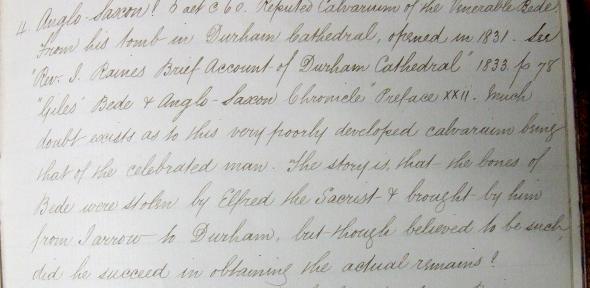 4. Anglo-Saxon? ♂ aet c 60. Reputed Calvarium of the Venerable Bede
From his tomb in Durham Cathedral, opened in 1831. See
"Rev. J. Raines Brief Account of Durham Cathedral" 1833. p 78
"Giles' Bede & Anglo-Saxon Chronicle" Preface XXII. Much
doubt exists as to this very poorly developed calvarium being
that of the celebrated man. The story is, that the bones of
Bede were stolen by Elfred the Sacrist & brought by him
from Jarrow to Durham, but though believed to be such,
did he succeed in obtaining the actual remains?